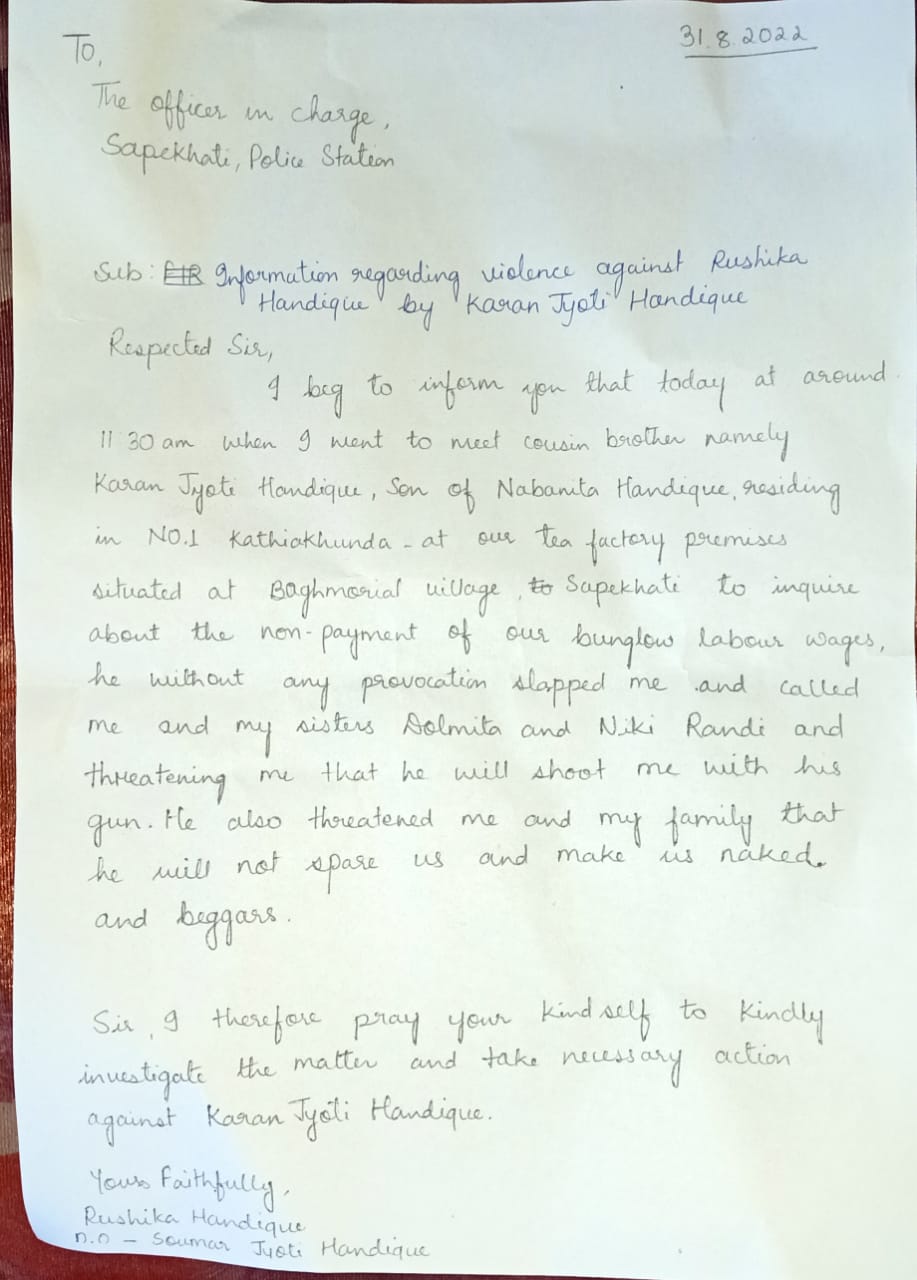 31.8.2022
To,
The officer in charge,
Sapekhati, Police Station
Sub: FIR Information regarding violence against Rushika
Handique by Karan Jyoti Handique
Respected Sir,
I beg to inform you that today at around
11 30 am when I went to meet cousin brother namely
Karan Jyoti Handique, Son of Nabanita Handique, residing
in NO.1 Kathiakhunda - at our tea factory premises
situated at Baghmorial village, to Sapekhati to inquire
about the non-payment of our bunglow labour wages,
he without any provocation slapped me and called
me and my sisters Dolmita and Niki Randi and
threatening me that he will shoot me with his
gun. He also threatened me and my family that
he will not spare us and make us naked.
and beggars.
Sir, I therefore pray your kind self to kindly
investigate the matter and take necessary action
against Karan Jyoti Handique.
Yours Faithfully,
Rushika Handique
D.O - Soumar Jyoti Handique